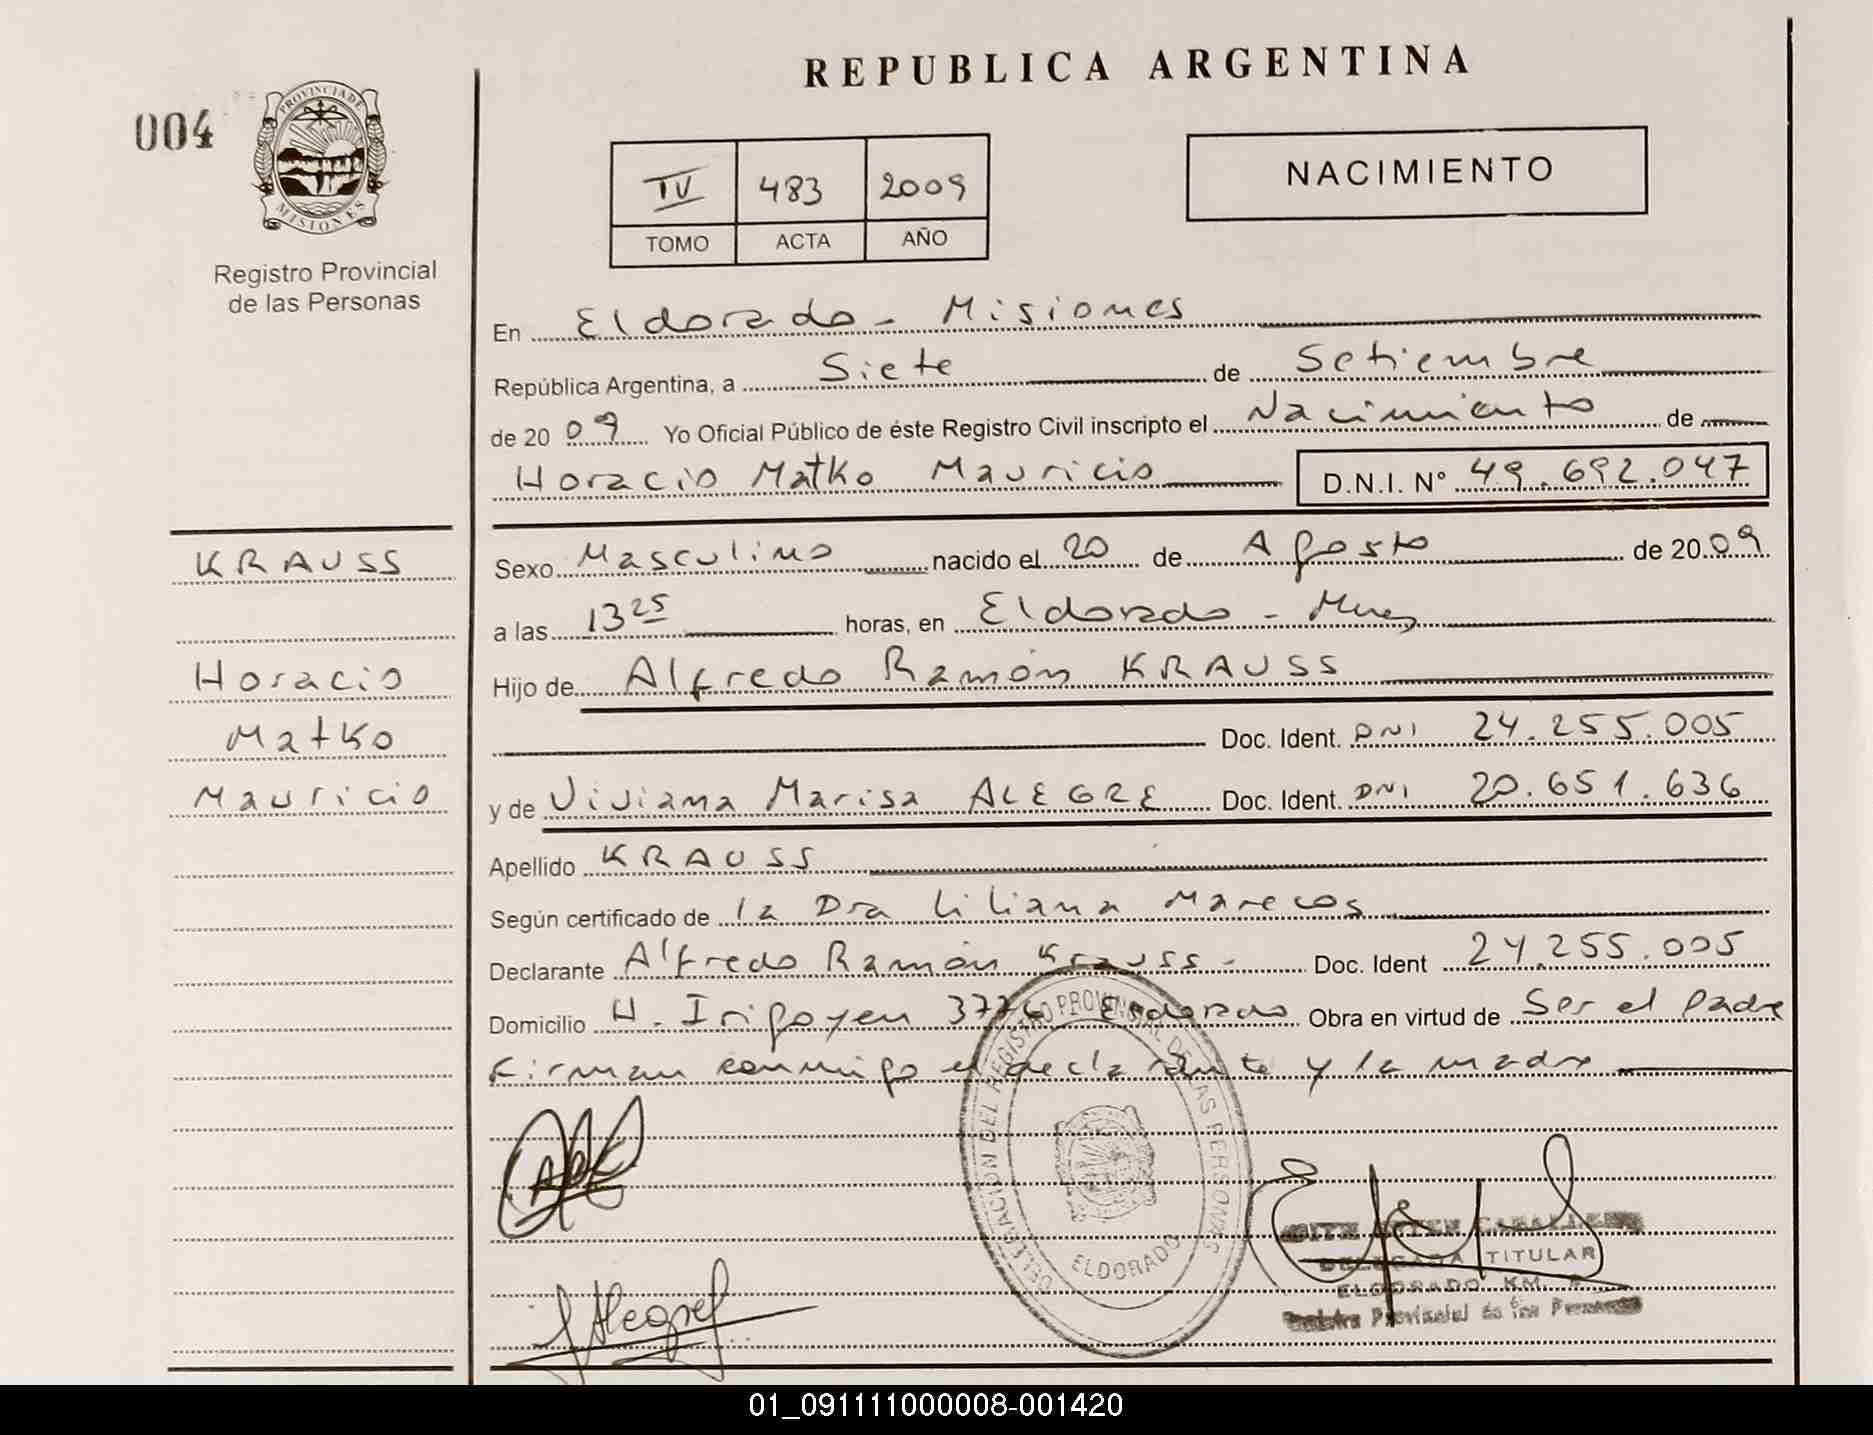 REPUBLICA ARGENTINA
004
PROVINCIA DE
MISIONES
Registro Provincial
de las Personas
IV 483 2009
TOMO ACTA AÑO
NACIMIENTO
En Eldorado - Misiones
República Argentina, a Siete de Setiembre
de 20 09 Yo Oficial Público de éste Registro Civil inscripto el Nacimiento de
Horacio Matko Mauricio D.N.I. Nº 49.692.047
KRAUSS
Horacio
Matko
Mauricio
Sexo Masculino nacido el 20 de Agosto de 20 09
a las 13 25 horas, en Eldorado - Mnes
Hijo de Alfredo Ramón KRAUSS
Doc. Ident. DNI 24.255.005
y de Viviana Marisa ALEGRE Doc. Ident. DNI 20.651.636
Apellido KRAUSS
Según certificado de la Dra Liliana Marecos
Declarante Alfredo Ramón Krauss - Doc. Ident 24.255.005
Domicilio H. Irigoyen Eldorado Obra en virtud de Ser el Padre
Firman conmigo el declarante y la madre
DELEGACION DEL REGISTRO PROVINCIAL DE LAS PERSONAS
ELDORADO
VAlegre
DELEGADA TITULAR
ELDORADO KM.
Registro Provincial de las Personas
01_091111000008-001420